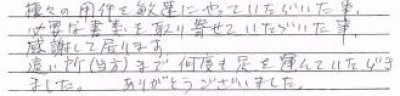 種々の用件を敏速にやっていただいた事、
必要な書類を取り寄せていただいた事、
感謝して居ります
遠い所(当方)まで何度も足を運んでいただき
ました。 ありがとうございました。